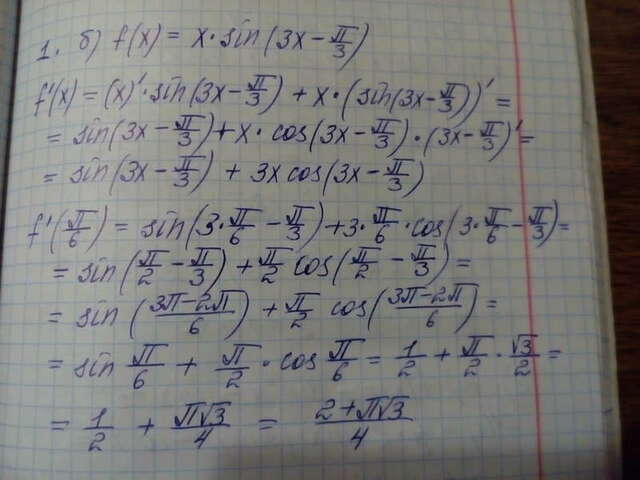 1. б) f(x) = x · sin(3x − π/3)
f'(x) = (x)' · sin(3x − π/3) + x · (sin(3x − π/3))' =
= sin(3x − π/3) + x · cos(3x − π/3) · (3x − π/3)' =
= sin(3x − π/3) + 3x cos(3x − π/3)
f'(π/6) = sin(3 · π/6 − π/3) + 3 · π/6 · cos(3 · π/6 − π/3) =
= sin(π/2 − π/3) + π/2 cos(π/2 − π/3) =
= sin((3π−2π)/6) + π/2 cos((3π−2π)/6) =
= sin π/6 + π/2 · cos π/6 = 1/2 + π/2 · √3/2 =
= 1/2 + π√3/4 = (2+π√3)/4